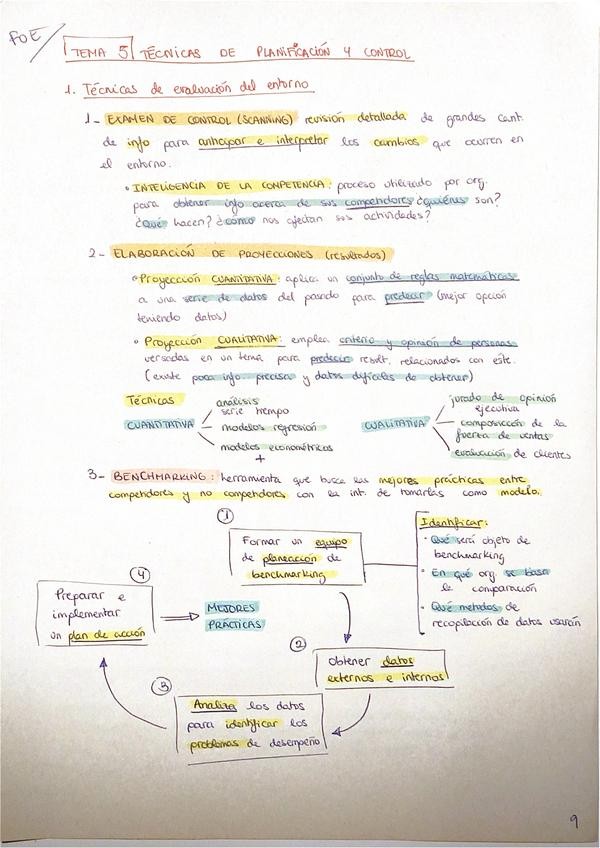 FOE
TEMA 5 TÉCNICAS DE PLANIFICACIÓN Y CONTROL
1. Técnicas de evaluación del entorno
1- EXAMEN DE CONTROL (SCANNING) revisión detallada de grandes cant.
de info para anticipar e interpretar los cambios que ocurren en
el entorno.
• INTELIGENCIA DE LA COMPETENCIA: proceso utilizado por org.
para obtener info acerca de sus competidores ¿quiénes son?
¿Qué hacen? ¿cómo nos afectan sus actividades?
2- ELABORACIÓN DE PROYECCIONES (resultados)
• Proyección CUANTITATIVA: aplica un conjunto de reglas matemáticas
a una serie de datos del pasado para predecir (mejor opción
teniendo datos)
• Proyección CUALITATIVA: emplea criterio y opinión de personas
versadas en un tema para predecir result. relacionados con este.
(existe poca info precisa y datos difíciles de obtener)
Técnicas
CUANTITATIVA
análisis
serie tiempo
modelos regresión
modelos econométricos
+
CUALITATIVA
jurado de opinión
ejecutiva
composición de la
fuerza de ventas
evaluación de clientes
3- BENCHMARKING: herramienta que busca las mejores prácticas entre
competidores y no competidores con la int. de tomarlas como modelo.
1
Formar un equipo
de planeación de
benchmarking
Identificar:
• Qué será objeto de
benchmarking
• En qué org. se basa
la comparación
• Qué metodos de
recopilación de datos usarán
4
Preparar e
implementar
un plan de acción
MEJORES
PRÁCTICAS
2
Obtener datos
externos e internos
3
Analiza los datos
para identificar los
problemas de desempeño
9